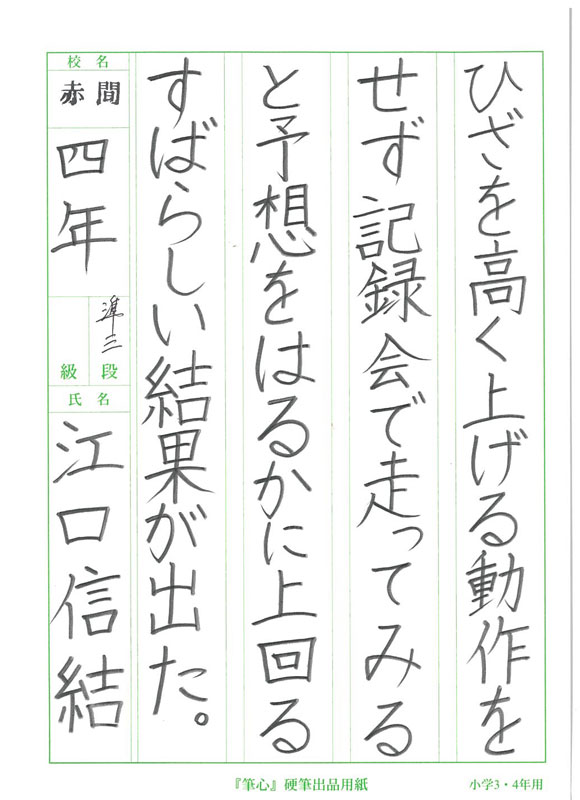 ひざを高く上げる動作を
せず記録会で走ってみる
と予想をはるかに上回る
すばらしい結果が出た。
校名
赤間
四年
準三
段
級
氏名
江口信結
『筆心』硬筆出品用紙
小学3・4年用